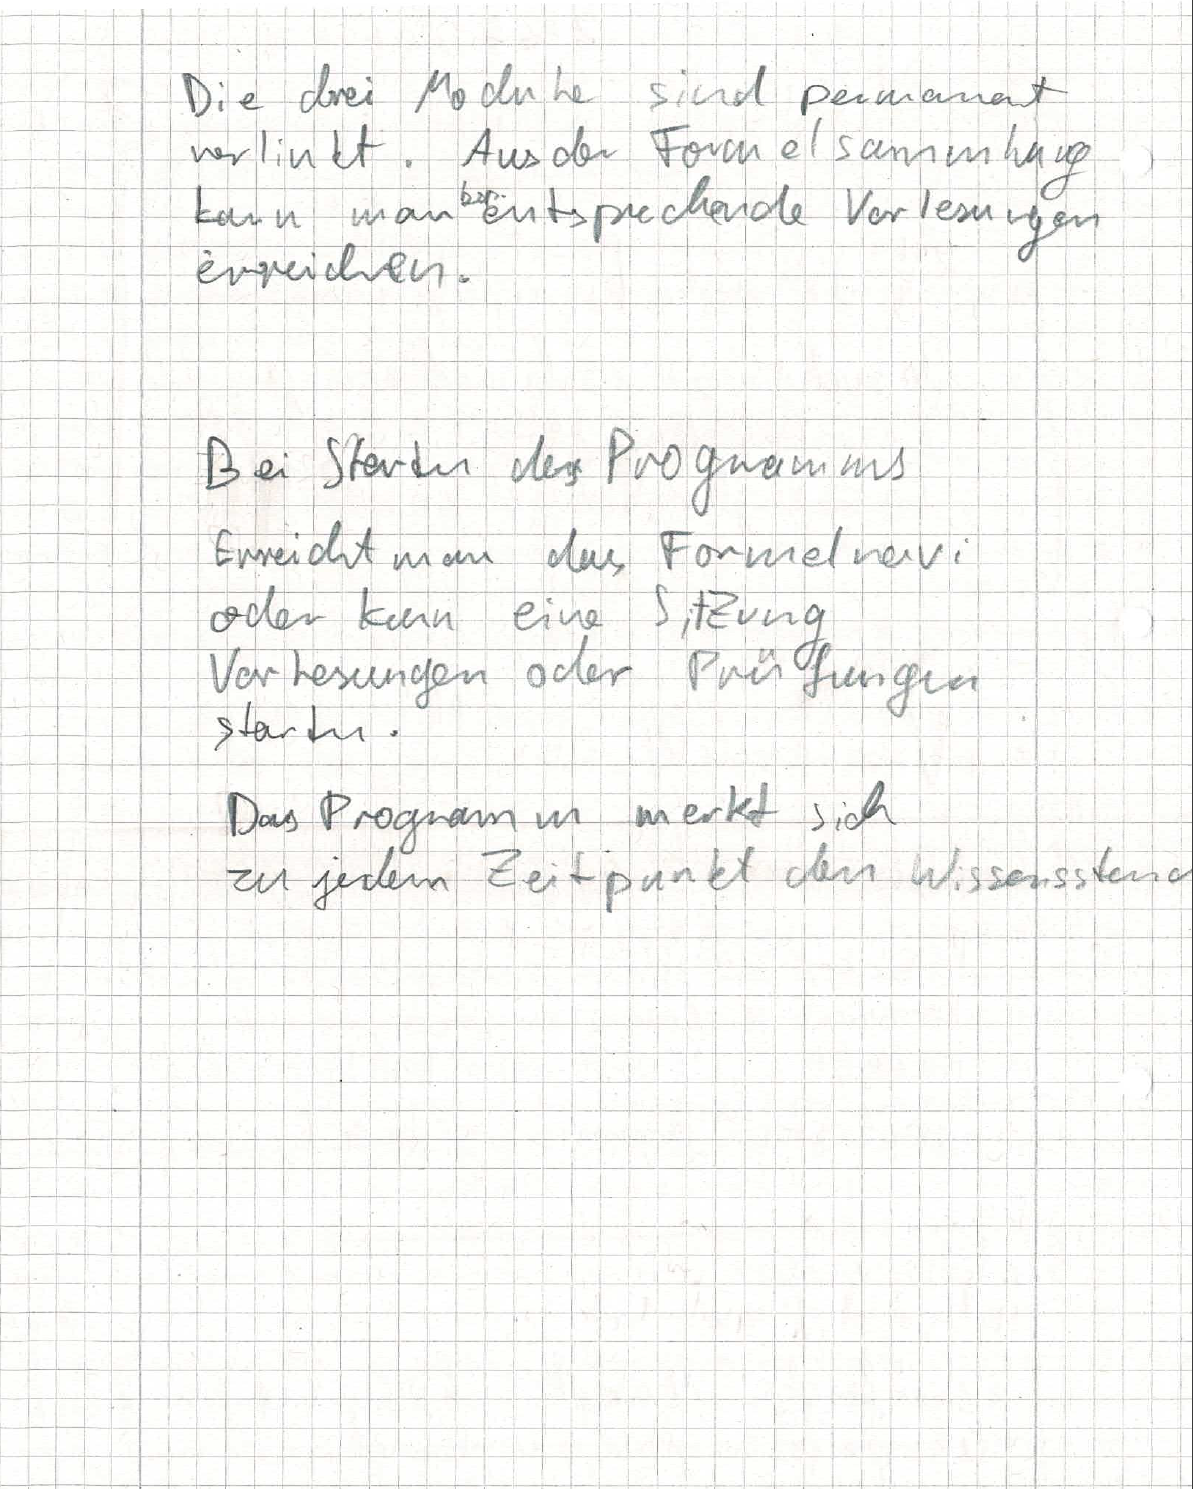 Die drei Module sind permanent
verlinkt. Aus der Formelsammlung
kann man entsprechende Vorlesungen
erreichen.
Bei Starten des Programms
Erreicht man das Formelnavi
oder kann eine Sitzung
Vorlesungen oder Prüfungen
starten.
Das Programm merkt sich
zu jedem Zeitpunkt den Wissensstand